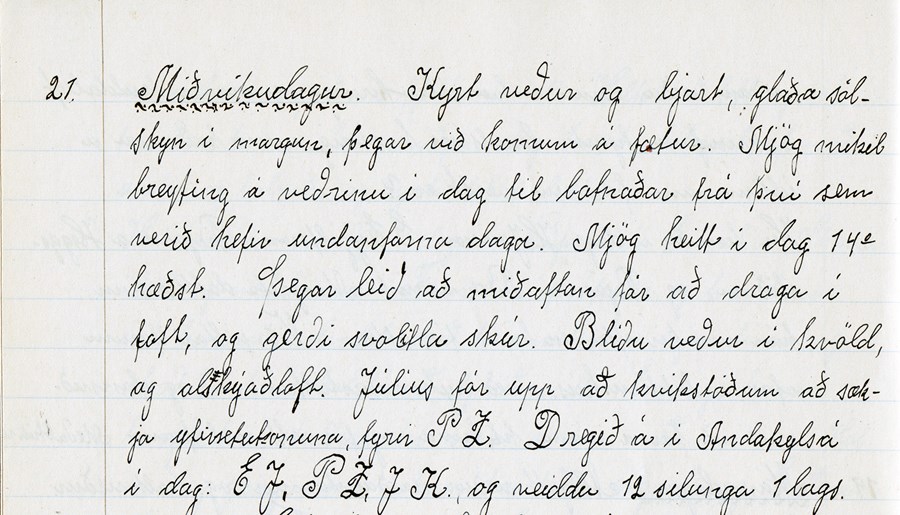 21. Miðvikudagur. Kyrt veður og bjart, glaða sól-
skyn í morgun, þegar við komum á fætur. Mjög mikil
breyting á veðrinu í dag til batnaðar frá því sem
verið hefir undanfarna daga. Mjög heitt í dag 14°
hæðst. Þegar leið að miðaftan fór að draga í
loft, og gerði svolitla skúr. Blíðu veður í kvöld,
og alskýjað loft. Júlíus fór upp að kvikstöðum að sæk-
ja yfirsetukonuna, fyrir P Z. Dregið á í Andakylsá
í dag: E J, P Z, J K., og veiddu 12 silunga 1 lags.